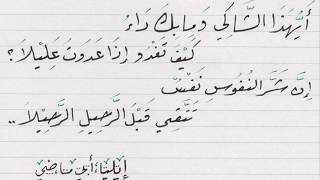 أَيُّهَذَا الشَّاكِي وَمَا بِكَ دَاءُ
كَيْفَ تَغْدُو إِذَا غَدَوْتَ عَلِيْلاَ؟
إِنَّ شَرَّ النُّفُوسِ نَفْسٌ
تَتَّقِي قَبْلَ الرَّحِيلِ الرَّحِيْلاَ..
إيليا أبي ماضي